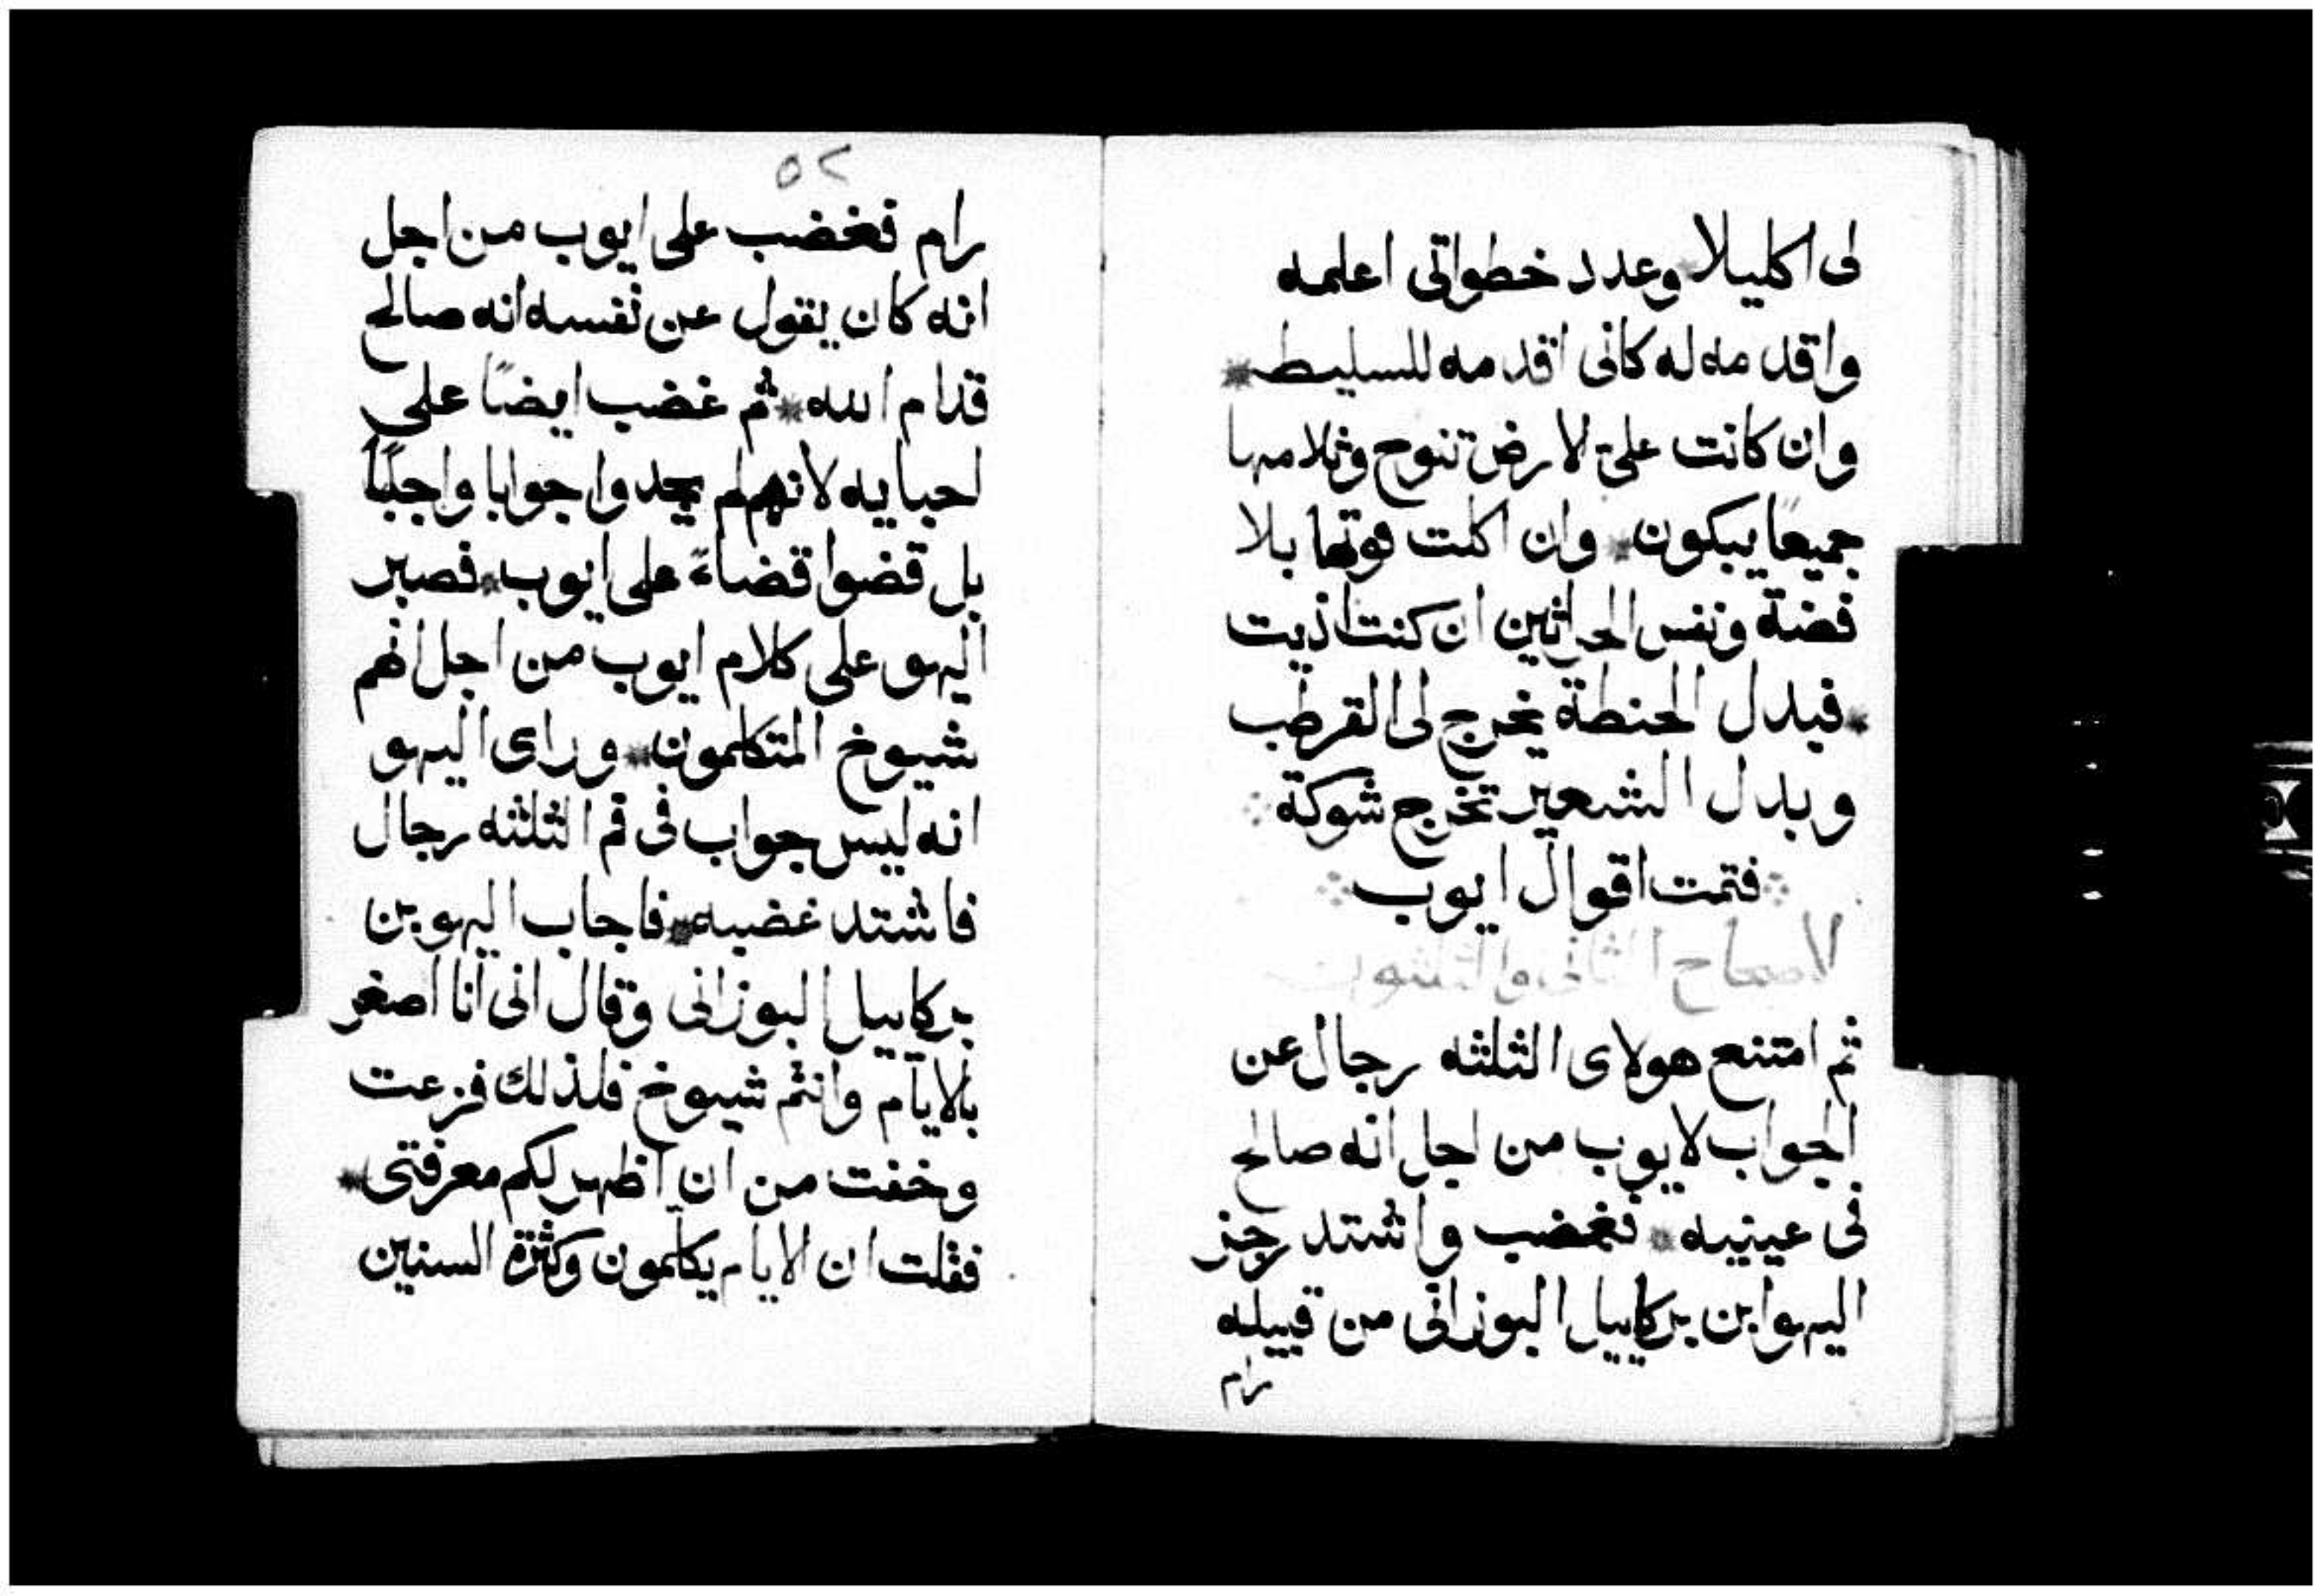 لى اكليلا وعدد خطواتى اعلمه
واقدمه له كانى اقدمه للسليط
وان كانت على الارض تنوح وثلامها
جميعًا يبكون وان اكلت قوتها بلا
فضة ونفس الحراثين ان كنت اذيت
فبدل الحنطة يخرج لى القرطب
وبدل الشعير تخرج شوكة
فتمت اقوال ايوب
الاصحاح الثانى والثلثون
ثم امتنع هولاى الثلثه رجال عن
الجواب لايوب من اجل انه صالح
فى عينيه فغضب واشتد رجز
اليهو ابن بركاييل البوزانى من قبيله
رام
٥٢
رام فغضب على ايوب من اجل
انه كان يقول عن نفسه انه صالح
قدام الله ثم غضب ايضًا على
احبايه لانهم لم يجدوا جوابا واجبًا
بل قضوا قضاة على ايوب فصبر
اليهو على كلام ايوب من اجل انهم
شيوخ المتكلمون وراى اليهو
انه ليس جواب فى فم الثلثه رجال
فاشتد غضبه فاجاب اليهو بن
بركاييل البوزانى وقال انى انا اصغر
بالايام وانتم شيوخ فلذلك فزعت
وخفت من ان اظهر لكم معرفتى
فقلت ان الايام يكلمون وكثرة السنين